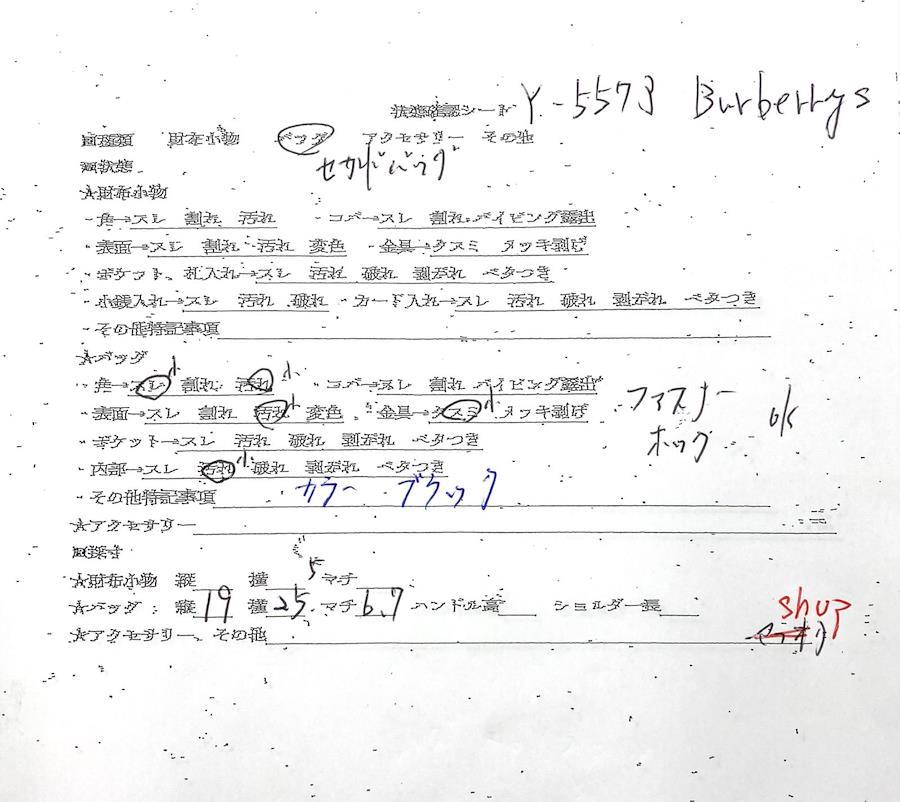 状態確認シート Y-5573 Burberrys
□種類 財布小物 バッグ アクセサリー その他
□状態 セカンドバッグ
★財布小物
・角→スレ 割れ 汚れ ・コバ→スレ 割れ パイピング露出
・表面→スレ 割れ 汚れ 変色 ・金具→クスミ メッキ剥げ
・ポケット、札入れ→スレ 汚れ 破れ 剥がれ ベタつき
・小銭入れ→スレ 汚れ 破れ ・カード入れ→スレ 汚れ 破れ 剥がれ ベタつき
・その他特記事項
★バッグ 小 小
・角→スレ 割れ 汚れ ・コバ→スレ 割れ パイピング露出
・表面→スレ 割れ 汚れ 小 変色 ・金具→クスミ 小 メッキ剥げ ファスナー ok
・ポケット→スレ 汚れ 破れ 剥がれ ベタつき ホック
・内部→スレ 汚れ 小 破れ 剥がれ ベタつき
・その他特記事項 カラー ブラック
★アクセサリー
□採寸
★財布小物 縦 横 マチ
★バッグ:縦 19 横 25.5 マチ 6.7 ハンドル高 ショルダー長 shup
★アクセサリー、その他